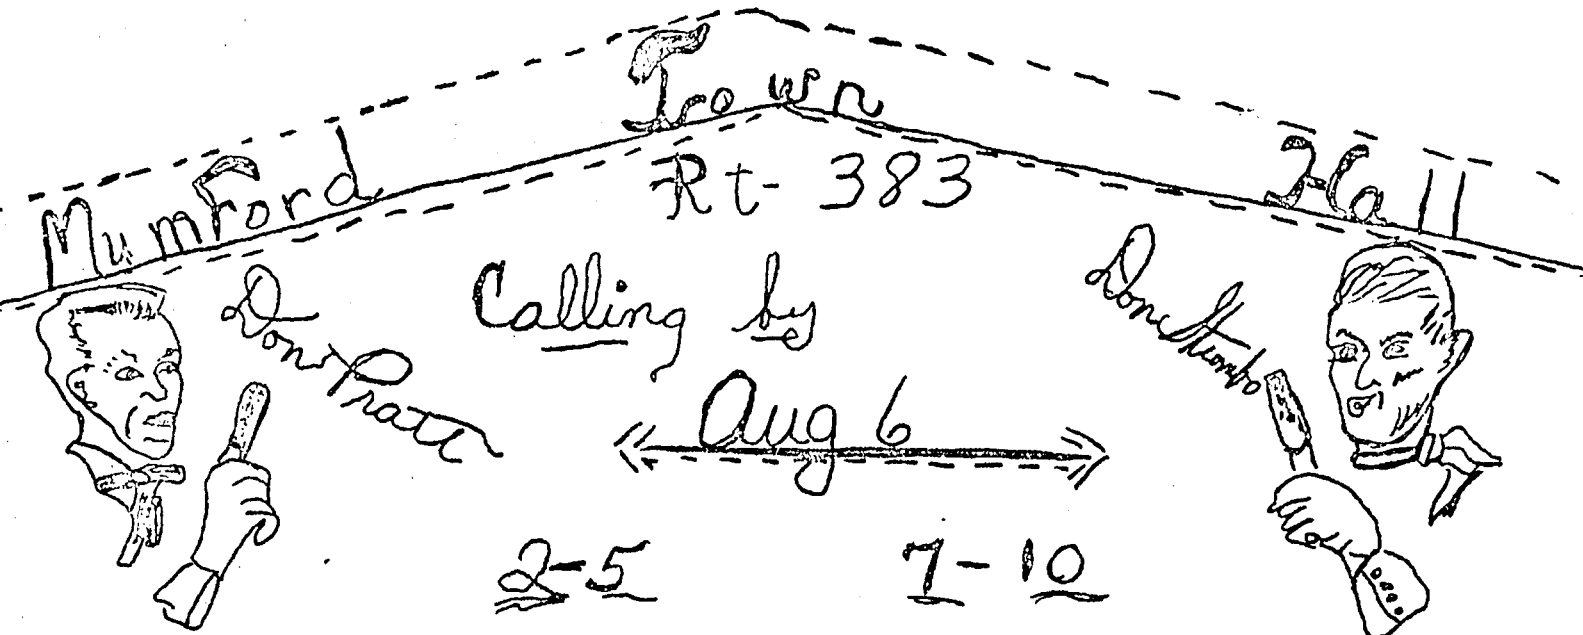 Mumford Town Hall
Rt- 383
Calling by
Don Pratt
Don Stumbo
Aug 6
2-5 7-10